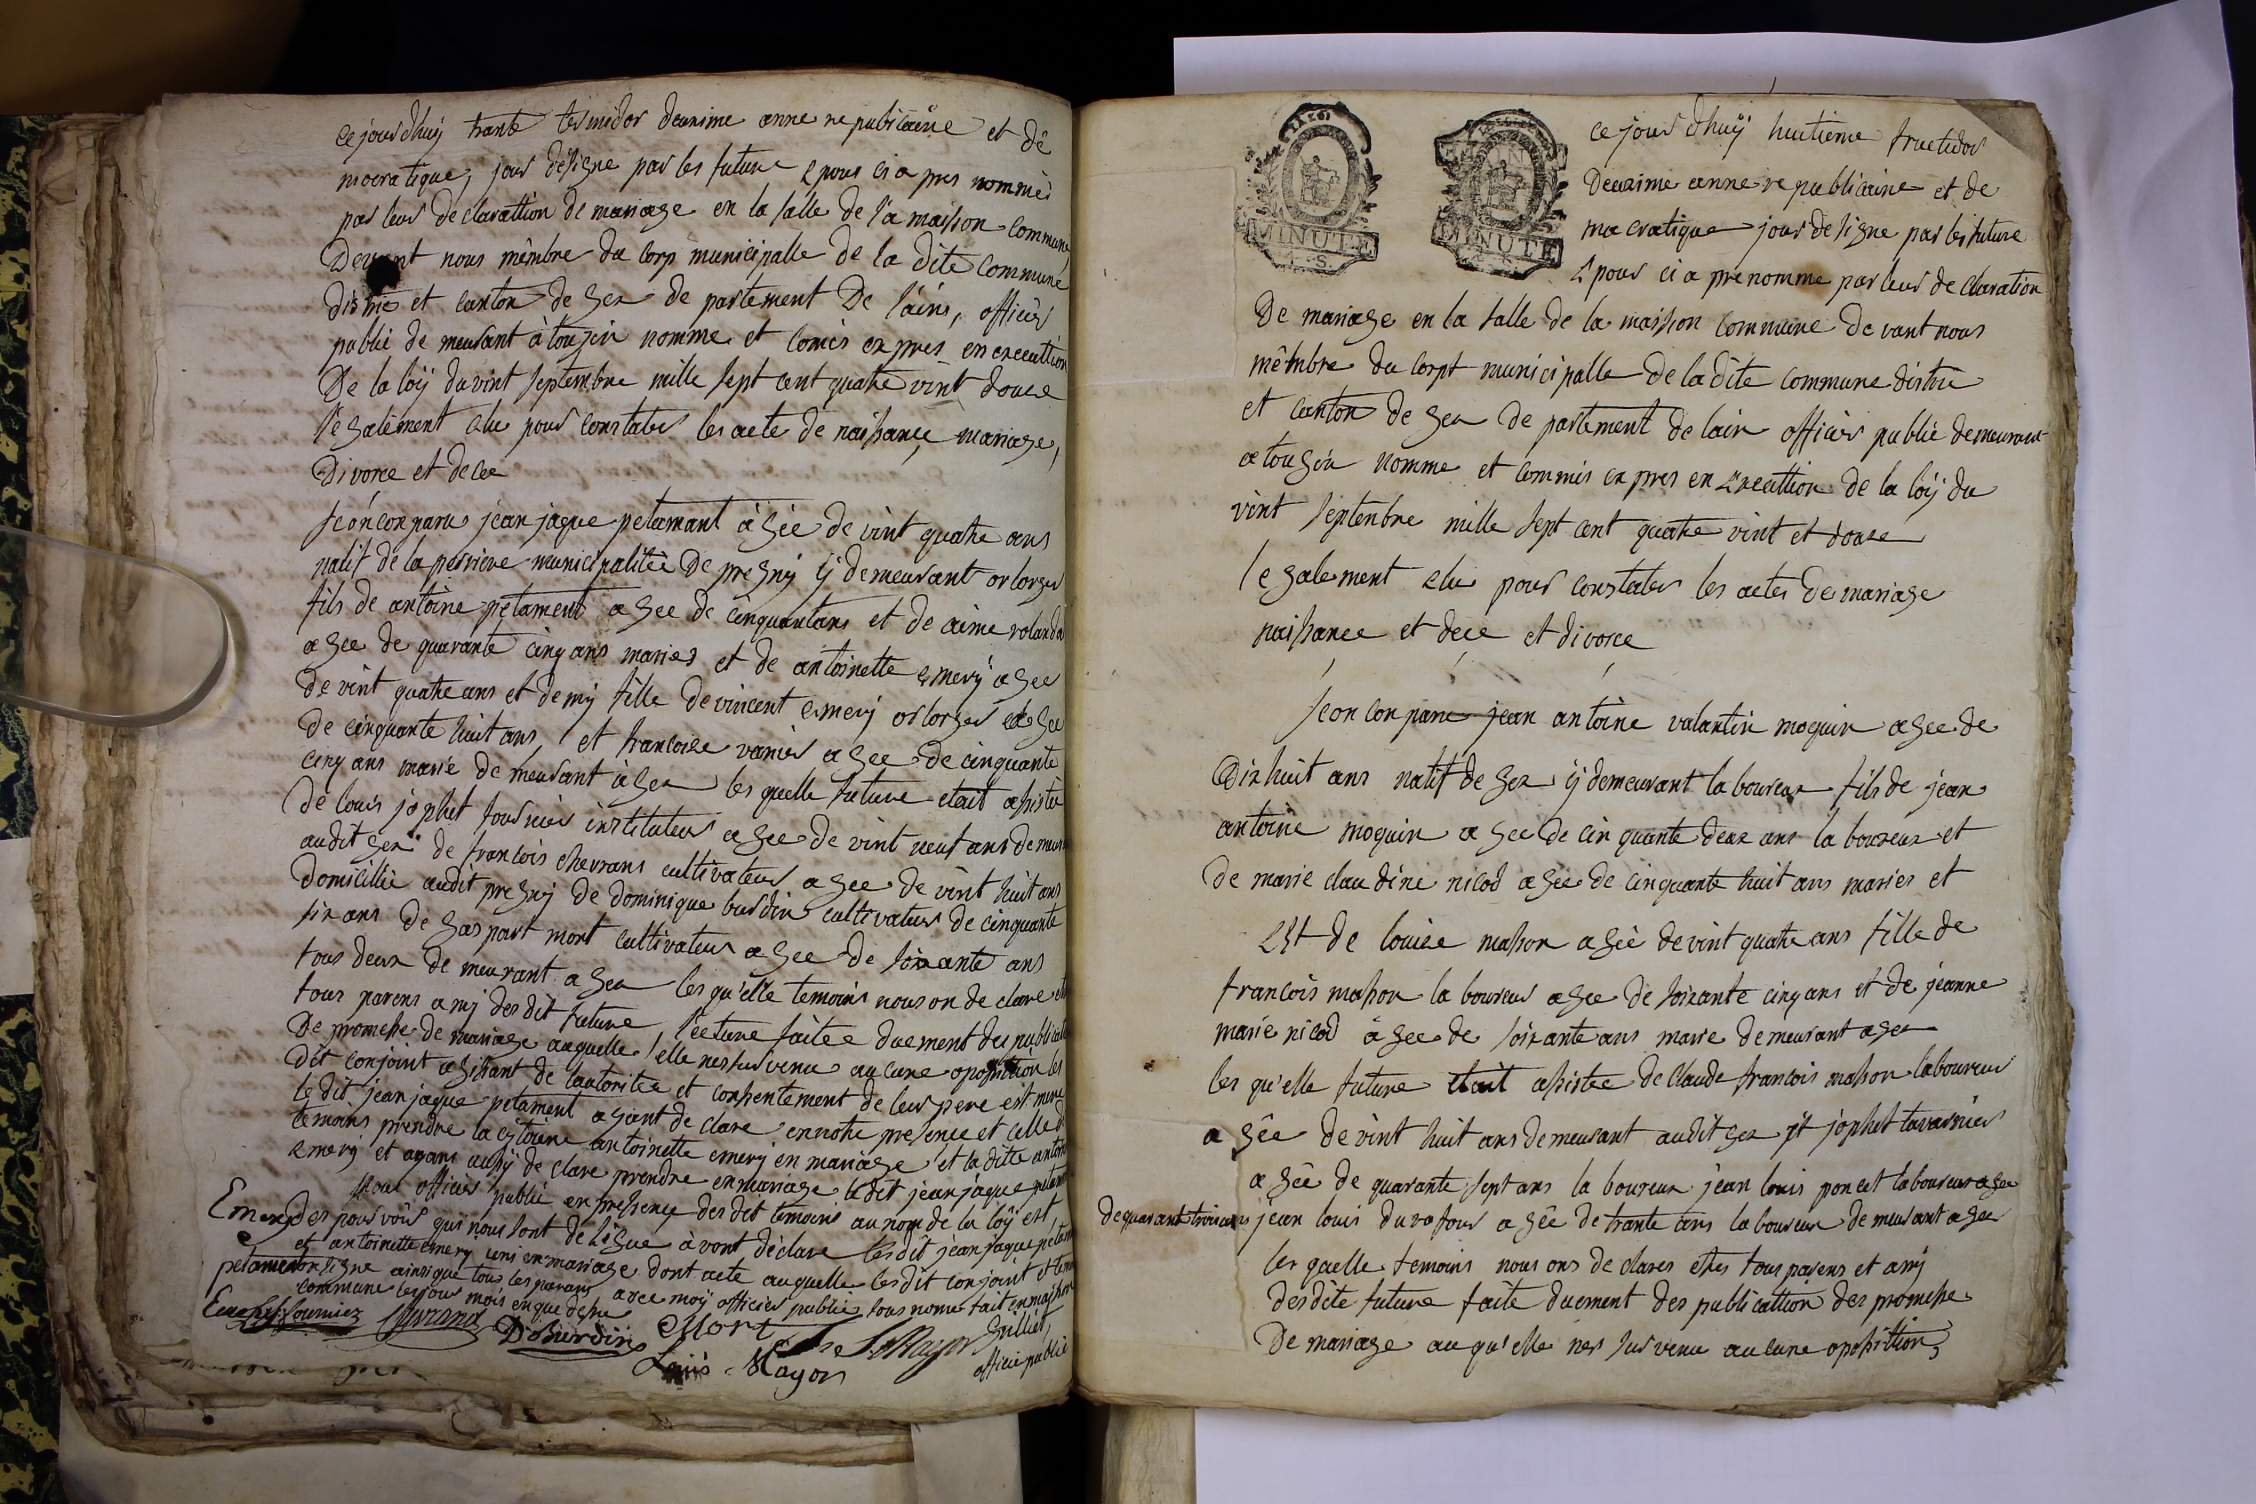 ce jourdhuy trante termidor deuxime anne republicaine et dé
mocratique, jour désigne par les future epoux ci a pres nommés
par leur declarattion de mariage en la salle de la maison commune
Devant nous mêmbre du corp municipalle de la dite commune
distric et canton de Gex de partement De l'ains, officier
publié de meurant à tougin nomme et comis expres en executtion
De la loÿ du vint septembre mille sept cent quatre vint douze
legalement elu pour constater les acte de naissance, mariage,
Divorce et decee
se on conparu jean jaque petamant à gée de vint quatre ans
natif de la perriere municipalitée De pregnÿ ÿ demeurant orlorger
fils de antoine petament a gee de cinquantans et de aime roland
a gee de quarante cinq ans maries et de antoinette emerÿ a gee
de vint quatre ans et demÿ fille de vincent emerÿ orlorger a gee
de cinquante huit ans, et francoise varies a gee de cinquante
cinq ans marié de meurant à Gex les quelle future etait assistée
de louis jophet fournier instituteur a gee de vint neuf ans demeurant
audit Gex de francois chevrans cultivateur a gee de vint huit ans
domicilliée audit pregnÿ de dominique burdin cultivateur de cinquante
six ans de gaspart mort cultivateur a gee de soixante ans
tous deux de meurant a Gex les qu'elle temoins nous on de clare etre
tous parens amÿ des dit future, lecture faite e duement du publication
De promesse de mariage auquelle, elle nes survenu aucune oposittion les
dit conjoint agissant de l'autoritée et consentement de leur pere est mere
le dit jean jaque petament agiant de clare en notre presence et celle des
temoins prendre la citoiene antoinette emerÿ en mariage et la dite antoinette
emerÿ et agans aussÿ de clare prendre en mariage le dit jean jaque petament
Nous officier publié en pressence des dit temoins au nom de la loÿ est
des pouvoir qui nous sont de legue avont declare les dit jean jaque petament
et antoinette emerÿ unis en mariage dont acte auquelle les dit conjoint et temoins
on signe ainsi que tous les parans avec moÿ officier publié sous nomme fait en maison
commune les jour mois en que dessu
Emery
petament
Fournier Chevrans DBurdin Mort
Louis Mayor Gilliet
officié publié
MINUTE
MINUTE
ce jour dhuÿ huitieme fructidor
Deuxime anne republicaine et de
mocratique jour designe par les future
Epoux ci a prenomme par leur de claration
De mariage en la salle de la maisson commune de vant nous
mêmbre du corpt municipalle de la dite commune distric
et canton de Gex de partement de lain officier publié demeurant
a tougin nomme et commis expres en executtion de la loÿ du
vint septenbre mille sept cent quatre vint et douze
legalement elu pour constater les actes de mariage
naissance et dece et divorce
se on conparu jean antoine valantin moquin a gee de
dixhuit ans natif de Gex ÿ demeurant laboureur fils de jean
antoine moquin a gee de cinquante deux ans laboureur et
de marie claudine nicod a gée de cinquante huit ans maries et
Est de louise masson a gée de vint quatre ans fille de
francois masson laboureur a gee de soixante cinq ans et de jeanne
marie nicod à gee de soixante ans marie demeurant a Gex
les qu'elle future etait assistee de claude francois masson laboureur
a gêe de vint huit ans demeurant audit Gex jophet tavarnier
a gêe de quarante sept ans laboureur jean louis poncet laboureur a gee
de quarant trois ans jean louis duratour a gêe de trante ans laboureur demeurant a Gex
les quelle temoins nous ons de clares etres tous parens et amÿ
des dite future faite duement des publicattion des promesse
De mariage auqu'elle nes survenu aucune opossittion,